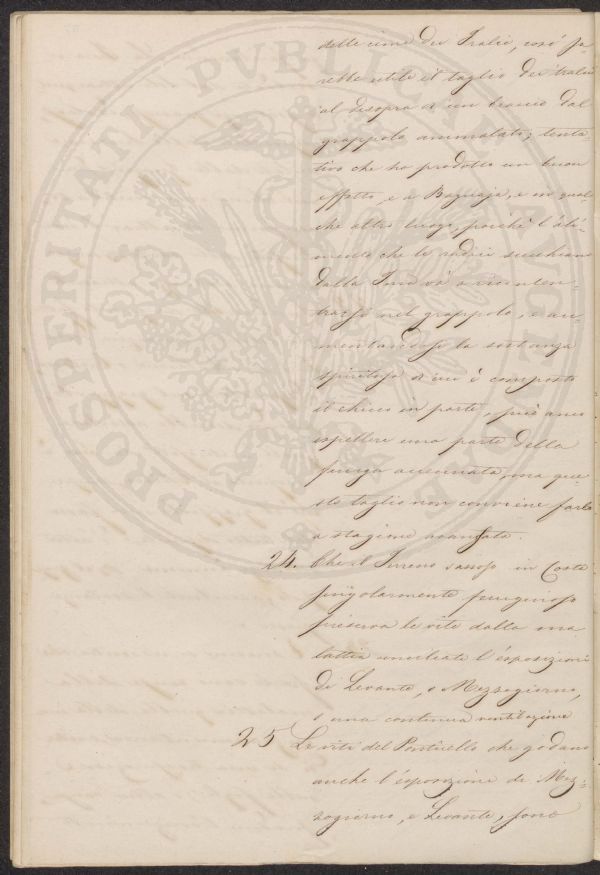 delle cime dei Tralci, così sa-
rebbe utile il taglio dei tralci
al disopra d un braccio dal
grappolo ammalato; tenta
tivo che ha prodotto un buon
effetto, e a Bagnaja, e in qual-
che altro luogo, poichè l'ali-
mento che le radici succhiano
dalla Terra và a riconcen-
trarsi nel grappolo, e au-
mentandosi la sostanza
spiritosa di cui è composto
il chicco in parte, può anco
espellere una parte della
funga accennata, ma que
sto taglio non conviene farlo
a stagione avanzata.
24. Che il Terreno sassoso in Costa
singolarmente
preserva le vite dalla ma
lattia conciliate l'esposizioni
di Levante, o Mezzogiorno,
e una continua ventilazione
25 Le viti del Ponticello che godano
anche l'esposizione di Mez-
zogiorno, e Levante, sono
PROSPERITATI PVBLICAE AVGENDAE